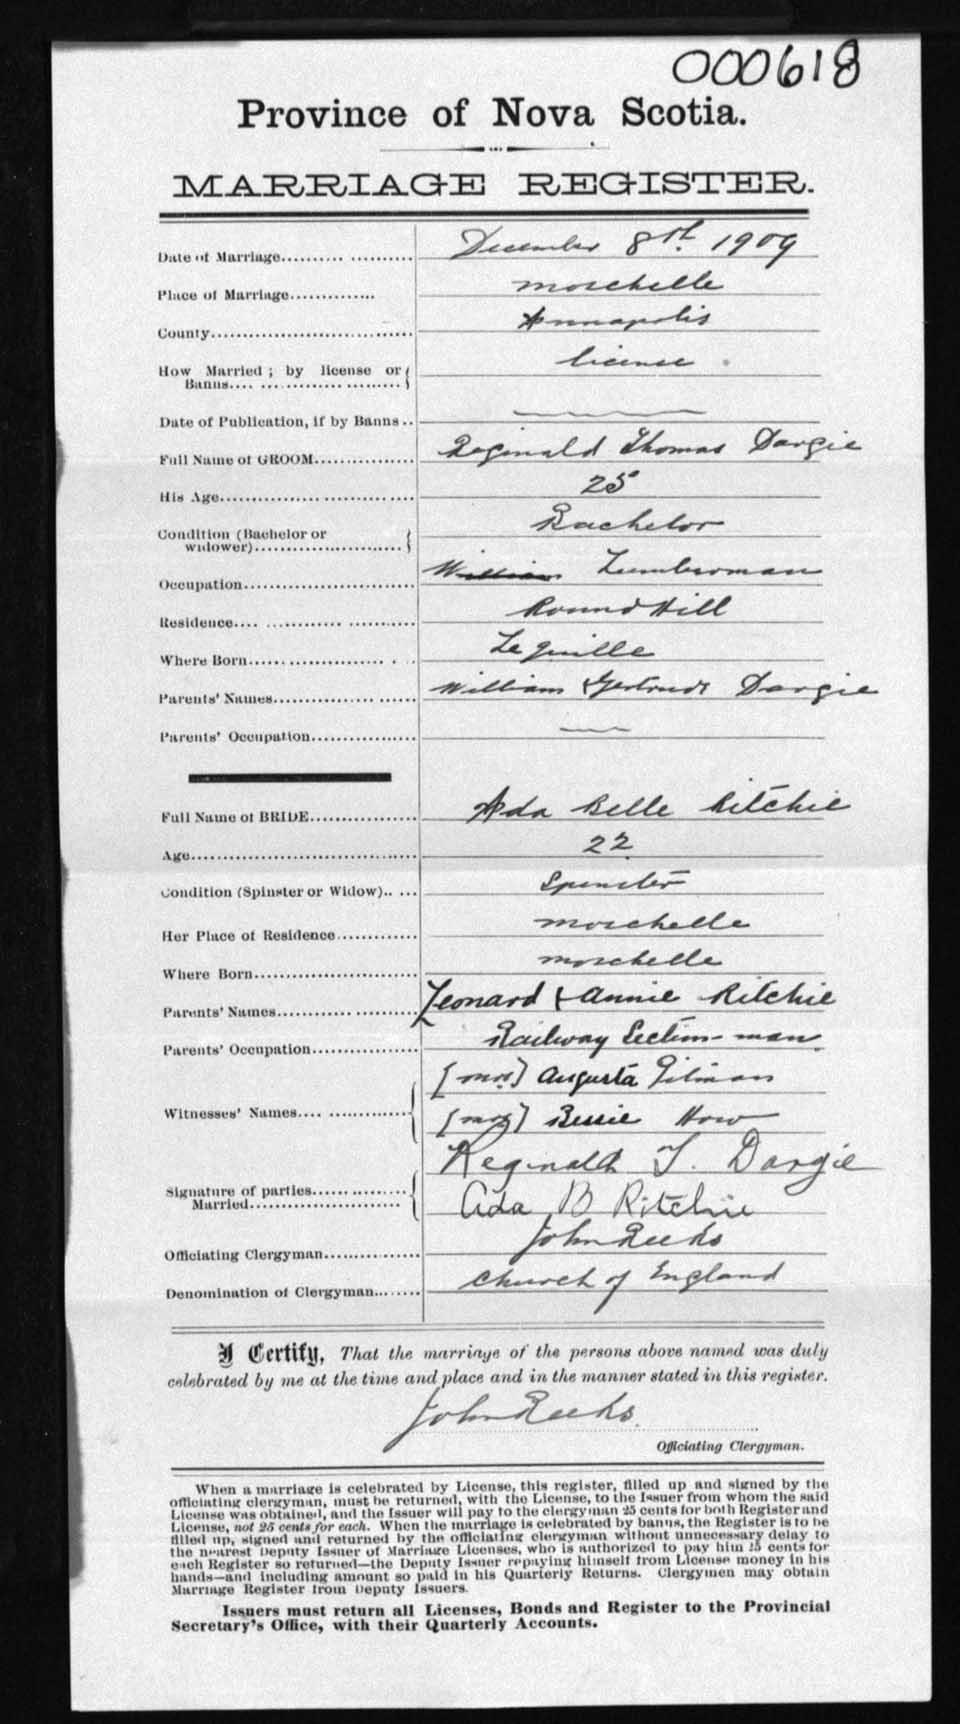 000618
Province of Nova Scotia.
MARRIAGE REGISTER.
Date of Marriage.......... ........... December 8th. 1909
Place of Marriage.............. Moschelle
County................................ Annapolis
How Married ; by license or
Banns.... ............................ license
Date of Publication, if by Banns ..
Full Name of GROOM............... Reginald Thomas Dargie
His Age............................... 25
Condition (Bachelor or
widower)........................... Bachelor
Occupation........................... William Lumberman
Residence.... ............. ........... Round Hill
Where Born.......................... . . Lequille
Parents' Names...................... William & Gertrude Dargie
Parents' Occupation................
Full Name of BRIDE................ Ada Belle Ritchie
Age.................................... 22
Condition (Spinster or Widow).. ... Spinster
Her Place of Residence............. Moschelle
Where Born.......................... Moschelle
Parents' Names...................... Leonard & Annie Ritchie
Parents' Occupation................ Railway Section-man.
Witnesses' Names.... .............. [Mrs] Augusta Gilman
[Mrs] Bessie How
Signature of parties................ Reginald T. Dargie
Married............................... Ada B Ritchie
Officiating Clergyman.............. John Reeks
Denomination of Clergyman....... Church of England
I Certify, That the marriage of the persons above named was duly
celebrated by me at the time and place and in the manner stated in this register.
John Reeks.
Officiating Clergyman.
When a marriage is celebrated by License, this register, filled up and signed by the
officiating clergyman, must be returned, with the License, to the Issuer from whom the said
License was obtained, and the Issuer will pay to the clergyman 25 cents for both Register and
License, not 25 cents for each. When the marriage is celebrated by banns, the Register is to be
filled up, signed and returned by the officiating clergyman without unnecessary delay to
the nearest Deputy Issuer of Marriage Licenses, who is authorized to pay him 25 cents for
each Register so returned—the Deputy Issuer repaying himself from License money in his
hands—and including amount so paid in his Quarterly Returns. Clergymen may obtain
Marriage Register from Deputy Issuers.
Issuers must return all Licenses, Bonds and Register to the Provincial
Secretary's Office, with their Quarterly Accounts.